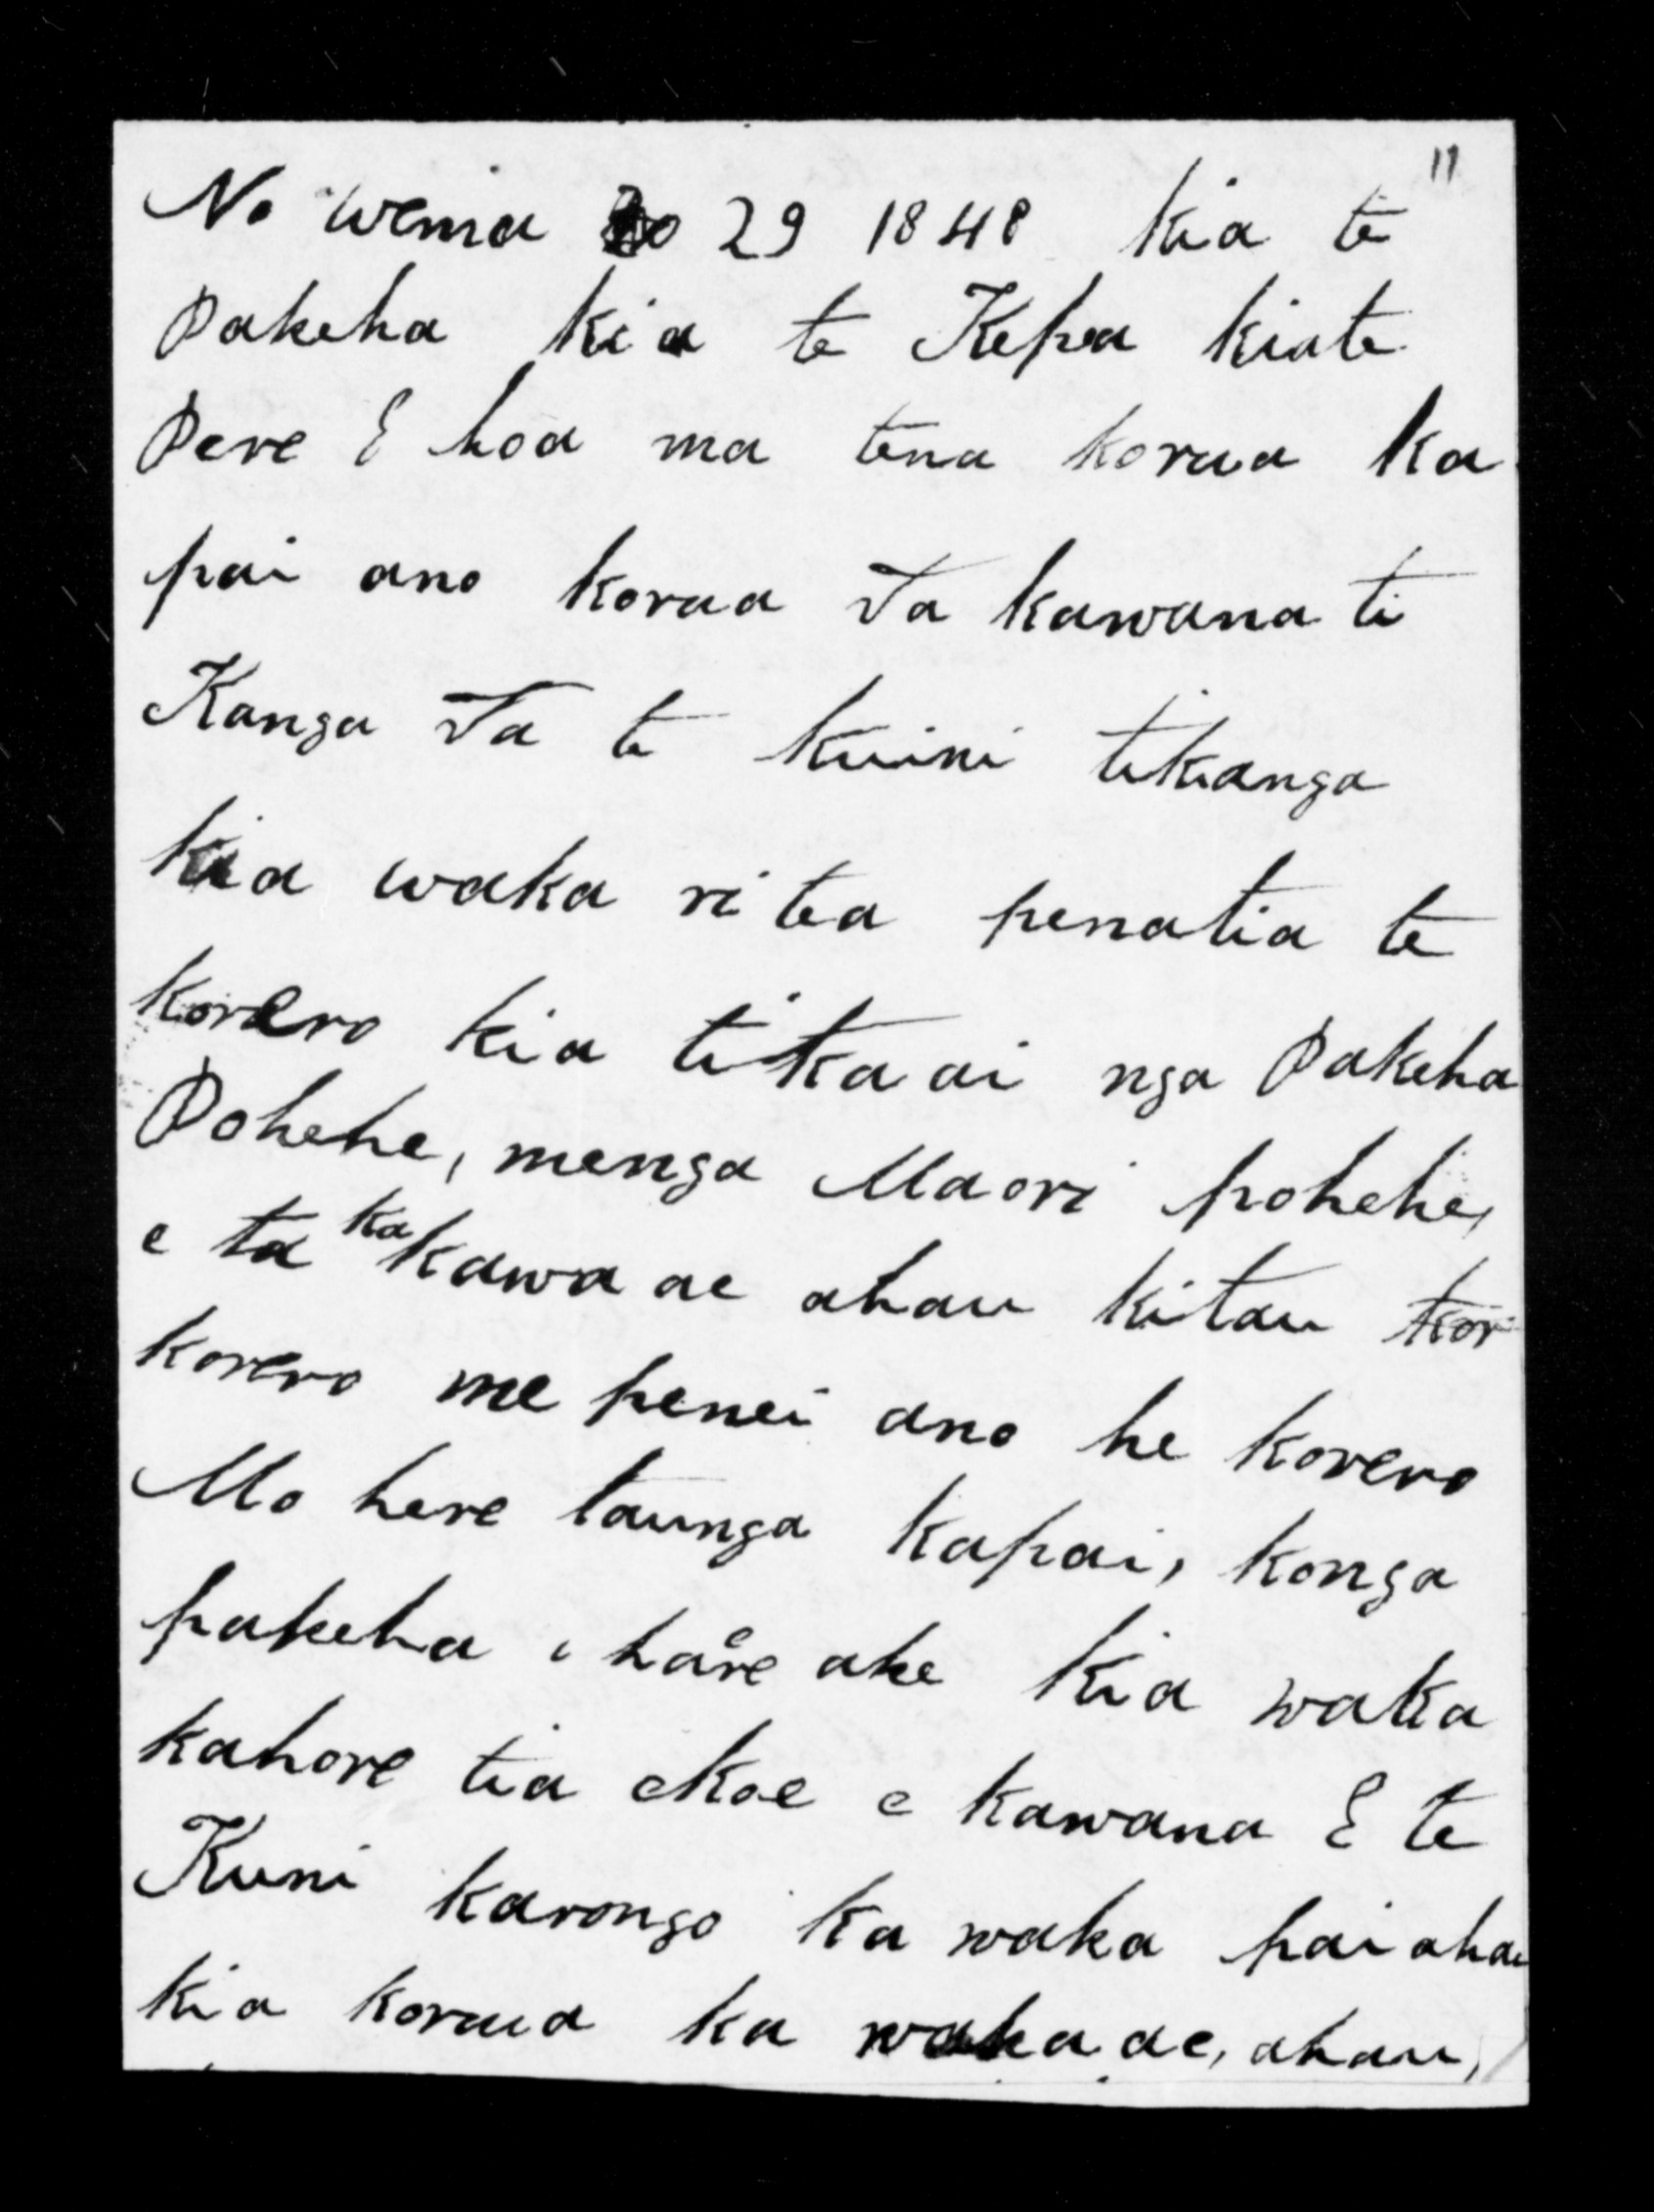 11
No wema 29 1848 kia te
Pakeha kia te Kepa kiate
Pere E hoa ma tena korua ka
pai ano korua Ta kawana ti
Kanga Ta te kuini tikanga
kia waka ri tea penatia te
korero kia tika ai nga Pakeha
Pohehe, menga Maori pohehe,
e ta ka kawa ae ahau kitau kor
korero me penei ano he korero
Mo here taunga kapai, konga
pakeha i haere ake kia waka
kahore tia ekoe e kawana E te
Kuni karongo ka waka pai ahau
kia korua ka waka ae, ahau,